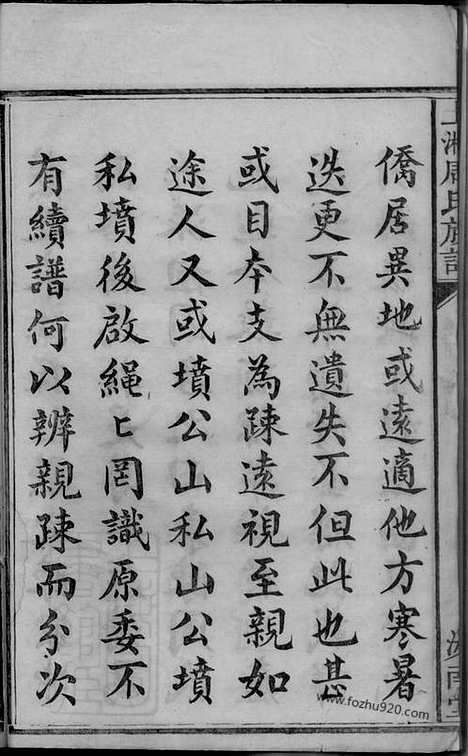 僑居異地或遠適他方寒暑
迭更不無遺失不但此也甚
或目本支為踈遠視至親如
途人又或墳公山私山公墳
私墳後啟繩〻罔識原委不
有續譜何以辨親踈而分次
上湘周氏族譜
www.fozhu920.com